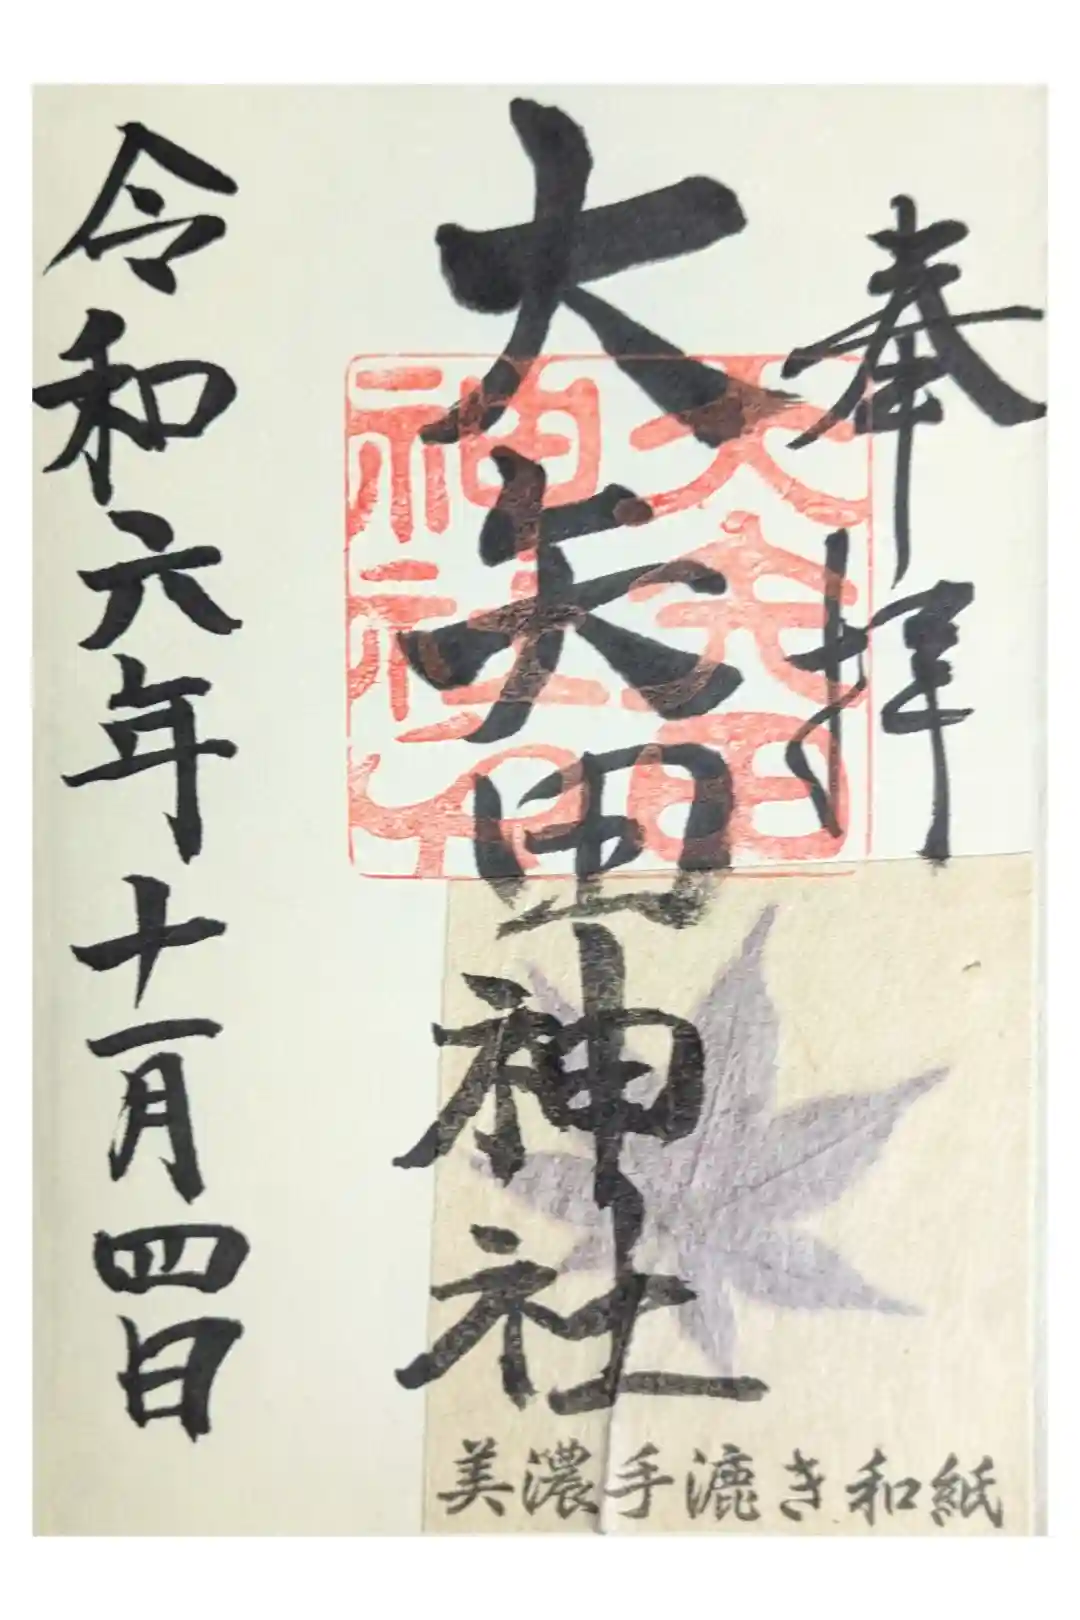 奉拝
大矢田神社
大矢田
神社之印
令和六年十一月四日
美濃手漉き和紙